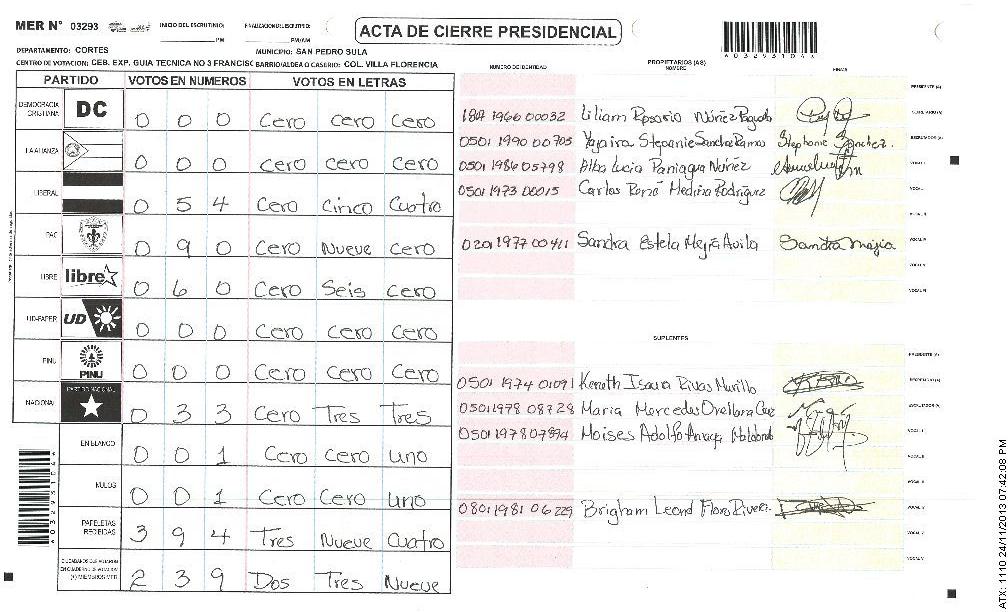 MER N° 03293
INICIO DEL ESCRUTINIO: PM
FINALIZACION DEL ESCRUTINIO: PM/AM
ACTA DE CIERRE PRESIDENCIAL
A 0 3 2 9 3 1 0 4 X
DEPARTAMENTO: CORTES
MUNICIPIO: SAN PEDRO SULA
CENTRO DE VOTACION: CEB. EXP. GUIA TECNICA NO 3 FRANCISC BARRIO/ALDEA O CASERIO: COL. VILLA FLORENCIA
PARTIDO VOTOS EN NUMEROS VOTOS EN LETRAS
DEMOCRACIA CRISTIANA DC 0 0 0 Cero cero cero
LA ALIANZA 0 0 0 cero cero cero
LIBERAL 0 5 4 Cero Cinco Cuatro
PAC 0 9 0 Cero Nueve Cero
LIBRE libre 0 6 0 Cero Seis Cero
UD-FAPER UD 0 0 0 Cero Cero Cero
PINU PINU 0 0 0 Cero Cero Cero
NACIONAL PARTIDO NACIONAL 0 3 3 Cero Tres Tres
EN BLANCO 0 0 1 Cero Cero uno
NULOS 0 0 1 Cero Cero uno
PAPELETAS RECIBIDAS 3 9 4 Tres Nueve Cuatro
CIUDADANOS QUE VOTARON EN CUADERNO DE VOTACION (+) MIEMBROS MER 2 3 9 Dos Tres Nueve
NUMERO DE IDENTIDAD PROPIETARIOS (AS) NOMBRE FIRMA
PRESIDENTE (A)
1966 00032 Liliam Rosario Núñez SECRETARIO (A)
0501 1990 00705 Stephanie Sanchez. ESCRUTADOR (A)
0501 1986 05798 Alba Lucia Paniagua Núñez VOCAL I
0501 1973 00015 Carlos René Medina Rodriguez VOCAL
VOCAL
0201 1977 00411 Sandra Estela Mejía Avila Sandra Mejia VOCAL
VOCAL
VOCAL
SUPLENTES
PRESIDENTE (A)
0501 1974 01091 Keneth Isaura Rivas Murillo SECRETARIO (A)
0501 1978 08728 Maria Mercedes Orellana ESCRUTADOR (A)
0501 1978 07894 Moises Adolfo VOCAL I
VOCAL
VOCAL
0801 1981 06229 Brigham Leond Flores Rivera VOCAL
VOCAL
VOCAL
ATX: 1110 24/11/2013 07:42:08 PM